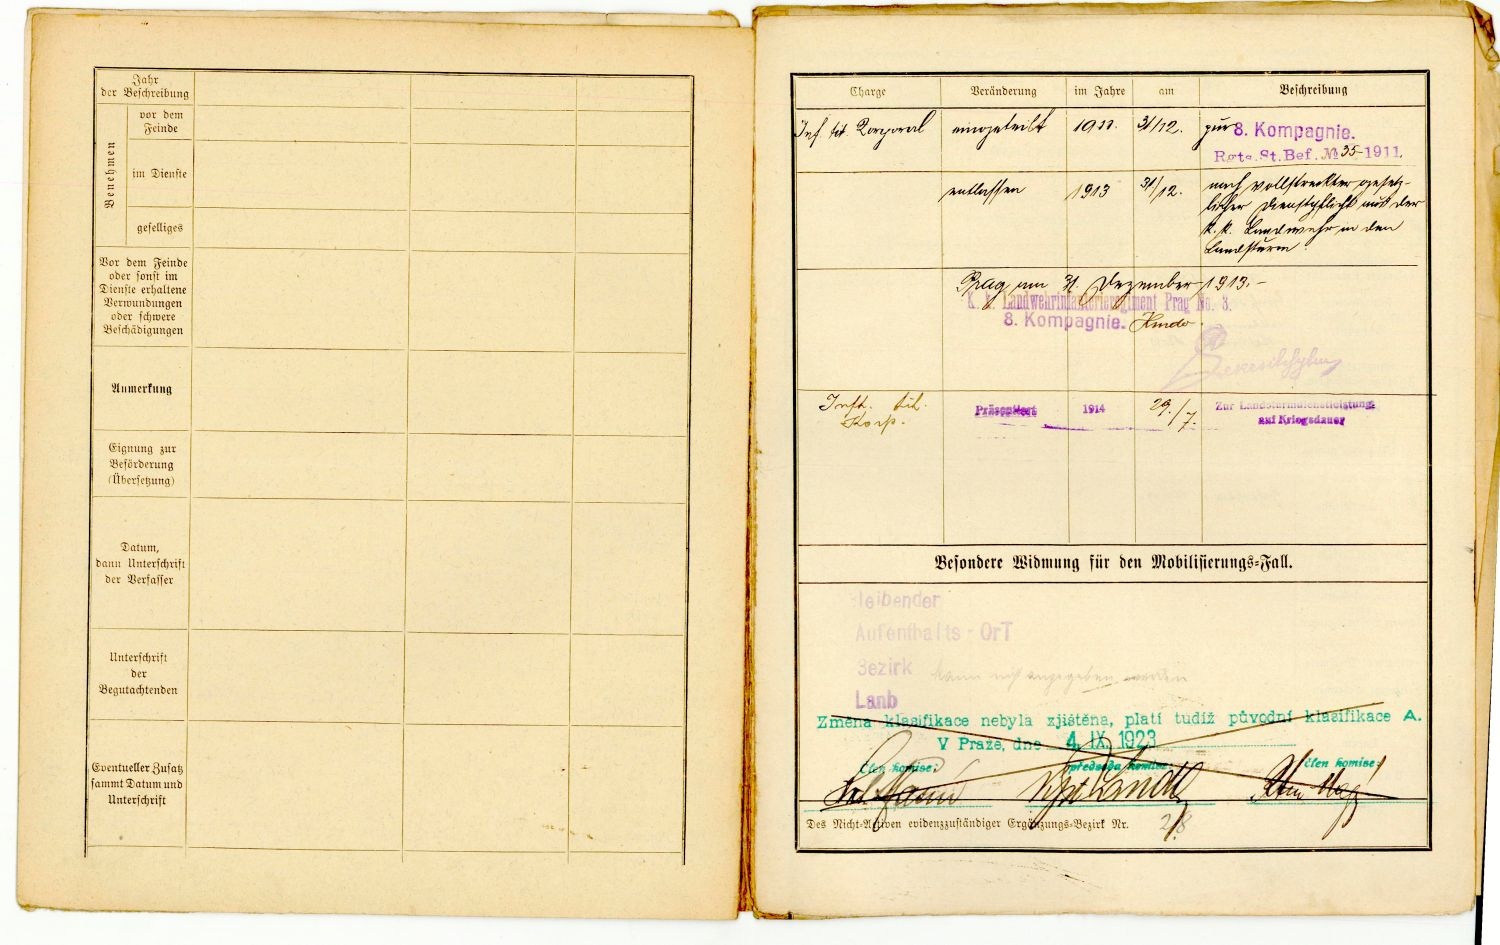 Jahr
der Beschreibung
Benehmen
vor dem
Feinde
im Dienste
geselliges
Vor dem Feinde
oder sonst im
Dienste erhaltene
Verwundungen
oder schwere
Beschädigungen
Anmerkung
Eignung zur
Beförderung
(Übersetzung)
Datum,
dann Unterschrift
der Verfasser
Unterschrift
der
Begutachtenden
Eventueller Zusatz
sammt Datum und
Unterschrift
Charge Veränderung im Jahre am Beschreibung
Inf. tit. Korporal eingeteilt 1911. 31/12. zur 8. Kompagnie.
Rgts.St.Bef.№ 35-1911.
entlassen 1913 31/12. nach vollstreckter gesetz-
licher Dienstpflicht aus der
k.k. Landwehr in den
Landsturm.
Prag am 31. Dezember 1913.-
K. k. Landwehrinfanterieregiment Prag No. 8.
8. Kompagnie. Kmdo.
Inft. tit. Präsentiert 1914 29./7. Zur Landsturmdienstleistung
Korp. auf Kriegsdauer
Besondere Widmung für den Mobilisierungs-Fall.
leibender
Aufenthalts-OrT
Bezirk kann nicht angegeben werden
Lanb
Změna klasifikace nebyla zjištěna, platí tudíž původní klasifikace A.
V Praze, dne 4. IX. 1923
Člen komise: předseda komise: Člen komise:
Des Nicht-Aktiven evidenzzuständiger Ergänzungs-Bezirk Nr. 28